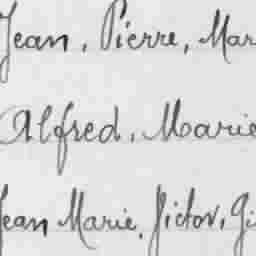 Jean, Pierre, Mar
Alfred, Marie
Jean Marie, Victor, Gi